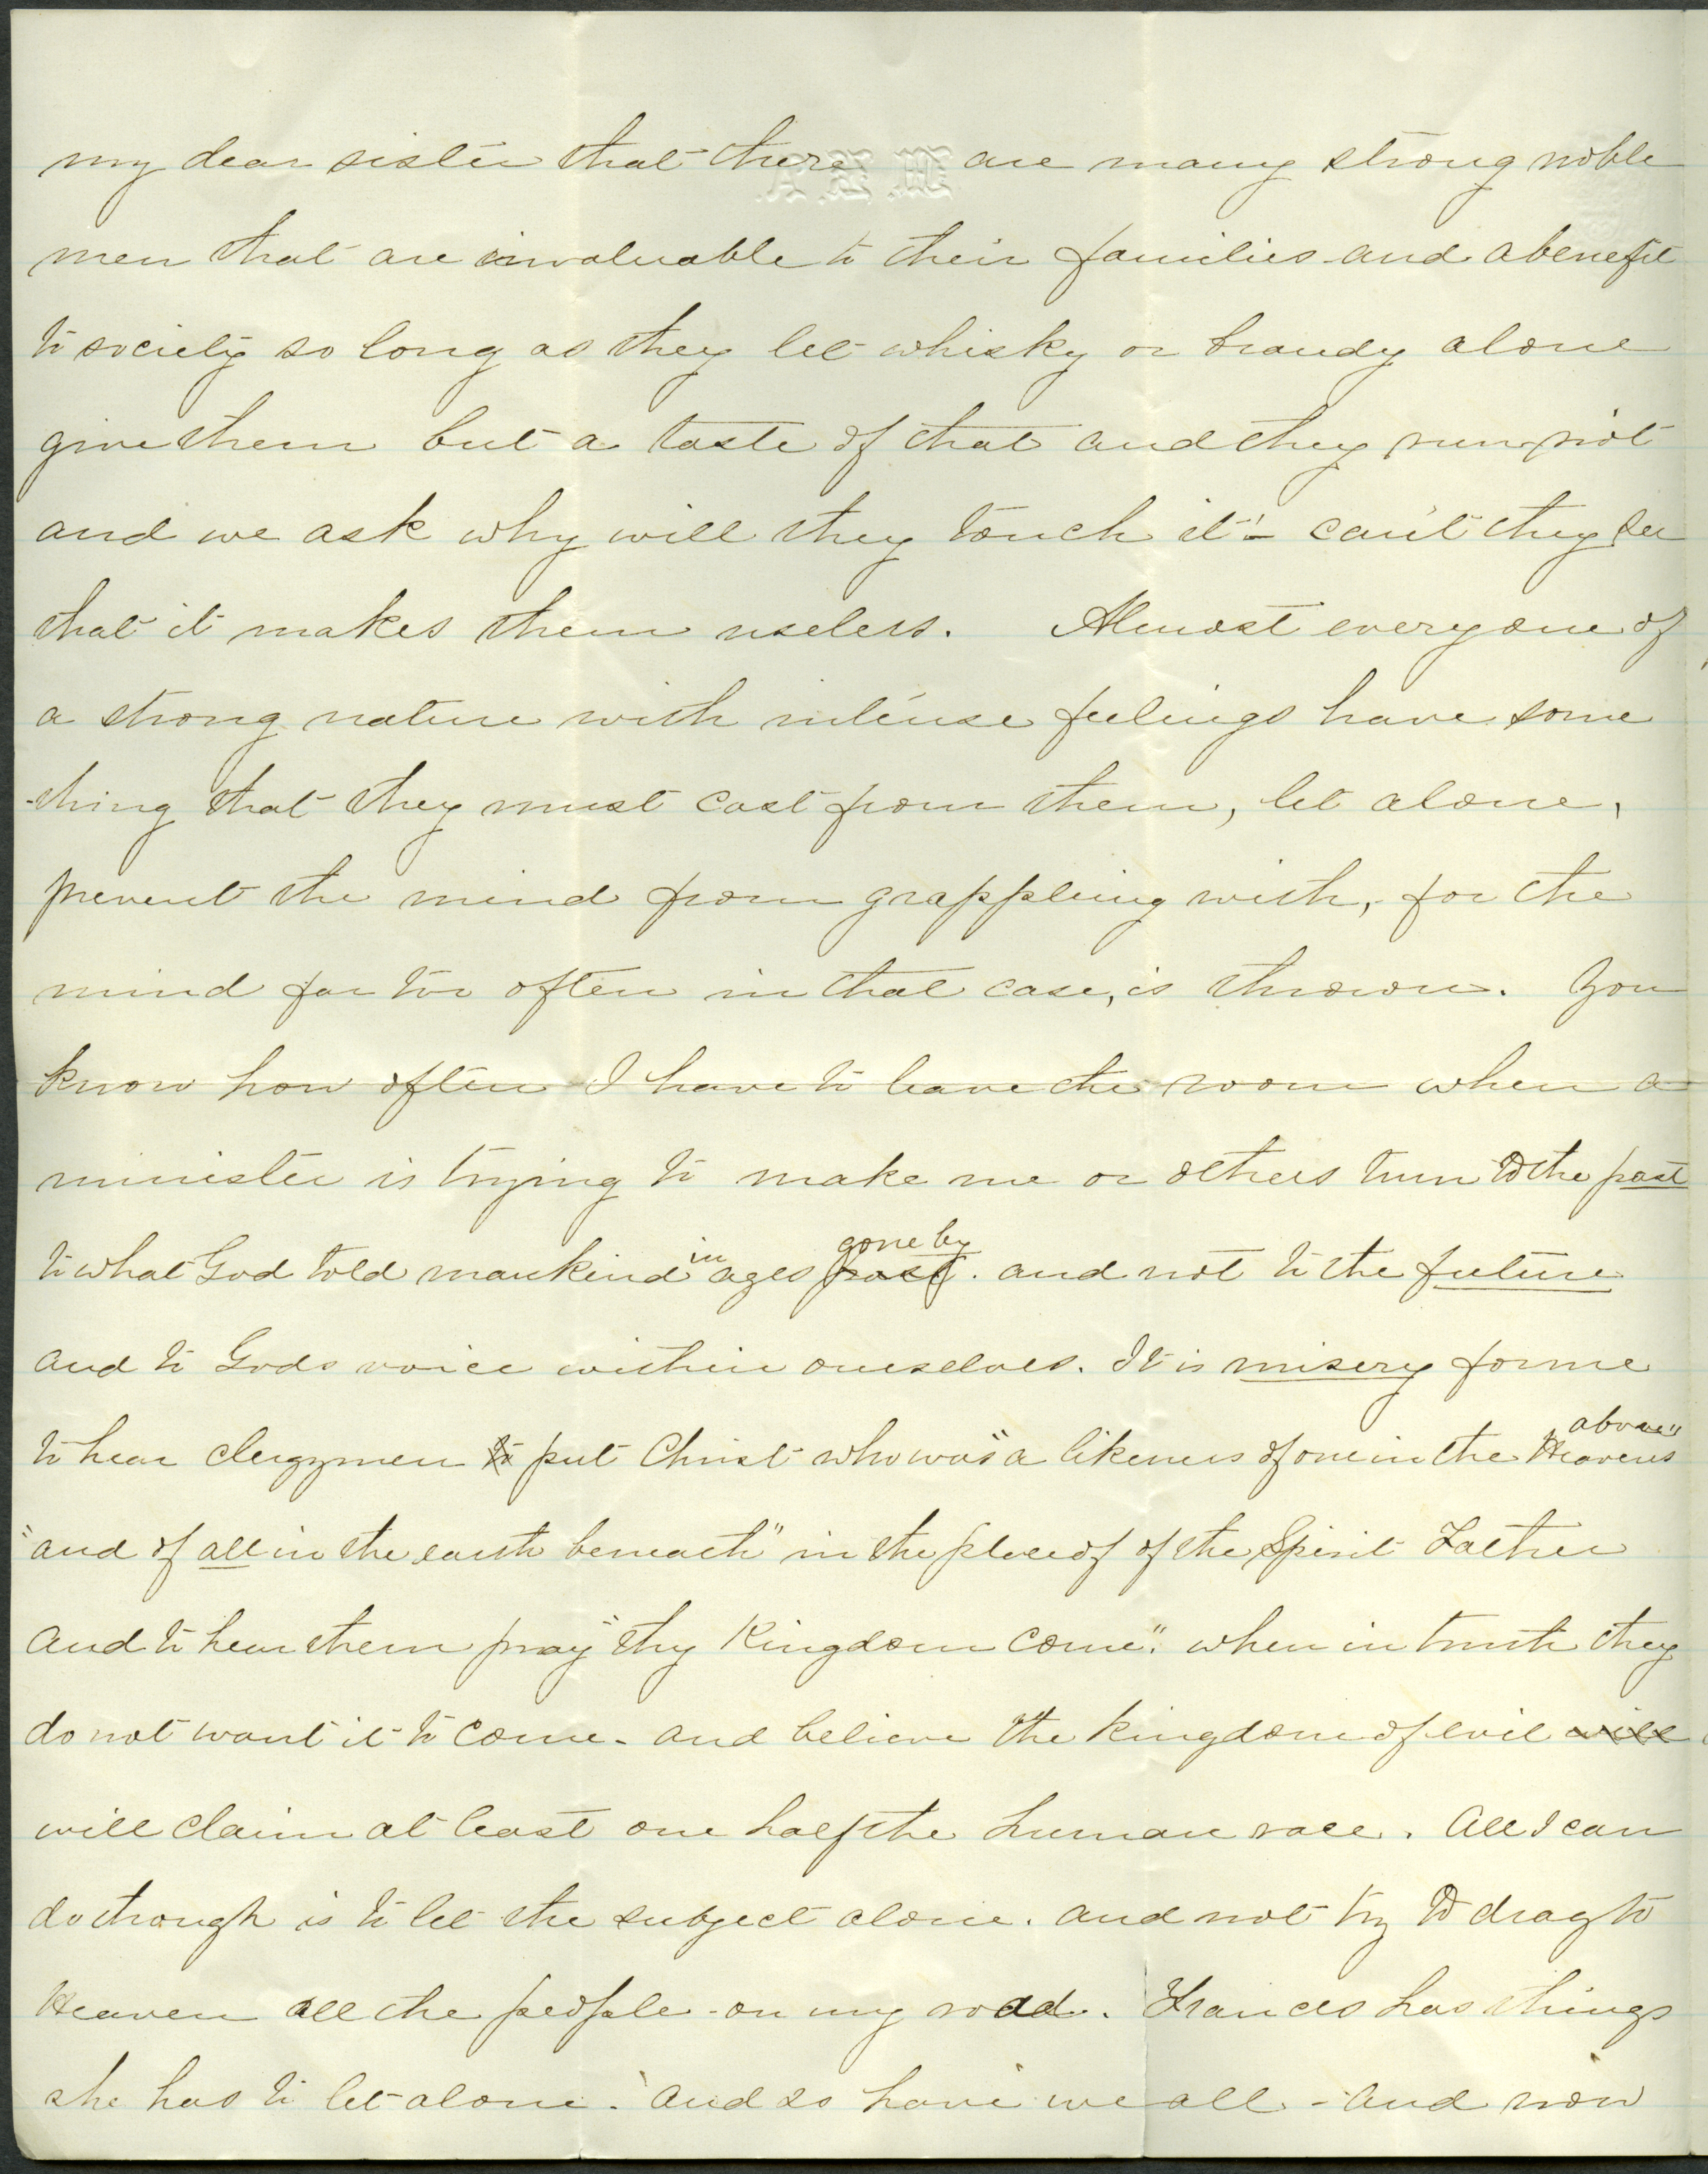 my dear sister that there are many strong noble
men that are invaluable to their families and a benefit
to society so long as they let whisky or brandy alone
give them but a taste of that and they run riot
and we ask why will they touch it! - can't they see
that it makes them useless. Almost everyone of
a strong nature with intense feelings have some
-thing that they must cast from them, let alone,
prevent the mind from grappling with, for the
mind far too often in that case, is thrown. You
know how often I have to leave the room when a
minister is trying to make me or others turn to the past
to what God told mankind in ages past gone by. and not to the future
and to Gods voice within ourselves. It is misery for me
to hear clergymen to put Christ who was "a likeness of one in the Heavens above"
"and of all in the earth beneath" in the place of of the Spirit Father
and to hear them pray "thy Kingdom come". when in truth they
do not want it to come - and believe the kingdom of evil will
will claim at least one half the human race. All I can
do though is to let the subject alone. and not try to drag to
Heaven all the people - on my road. Frances has things
she has to let alone. and so have we all - and now